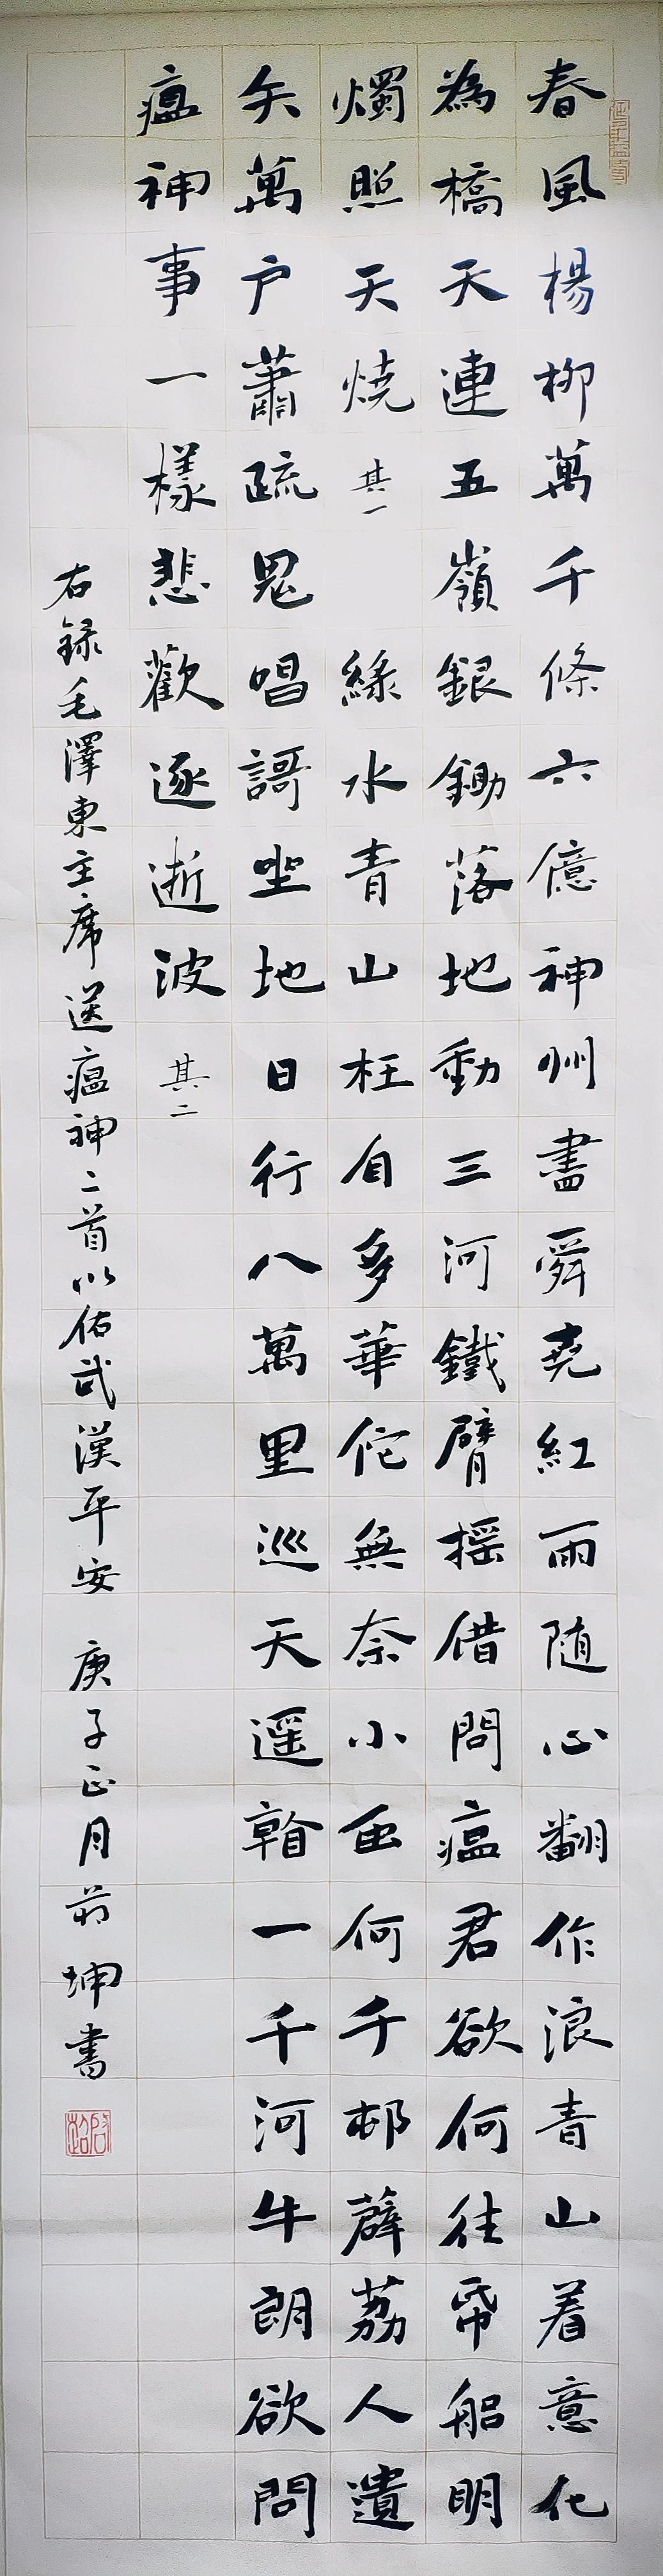 春風楊柳萬千條六億神州盡舜堯紅雨随心翻作浪青山着意化
為橋天連五嶺銀鋤落地動三河鐵臂摇借問瘟君欲何往帋船明
燭照天燒其一綠水青山枉自多華佗無奈小虫何千邨薜荔人遺
矢萬户蕭疏鬼唱謌坐地日行八萬里巡天遥䀵一千河牛郎欲問
瘟神事一樣悲歡逐逝波其二
右録毛澤東主席送瘟神二首以佑武漢平安 庚子正月 坤書